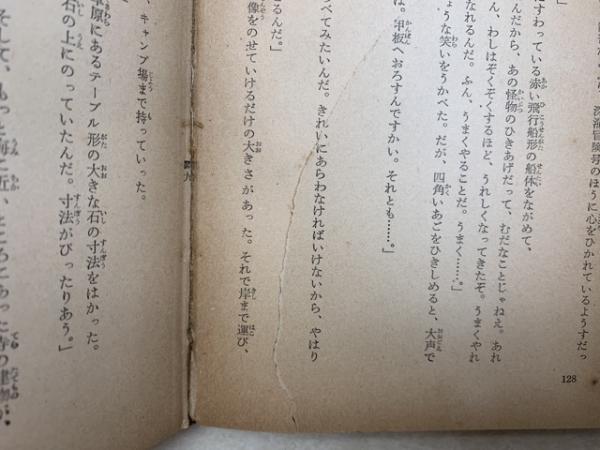 深海冒険号のほうに心をひかれているようすだっ
にすわっている赤い飛行船形の船体をながめて、
んだから、あの怪物のひきあげだって、むだなことじゃねえ。あれ
ん、わしはぞくぞくするほど、うれしくなってきたぞ。うまくやれ
なれるんだ。ふん、うまくやることだ。うまく……。」
ような笑いをうかべた。だが、四角いあごをひきしめると、大声で
は。甲板へおろすんですかい。それとも……。」
べてみたいんだ。きれいにあらわなければいけないから、やはり
るんだ。」
像をのせていけるだけの大きさがあった。それで岸まで運び、
128
、キャンプ場まで持っていった。
草原にあるテーブル形の大きな石の寸法をはかった。
石の上にのっていたんだ。寸法がぴったりあう。」
そして、もっと海に近いところにあった寺の建物が、